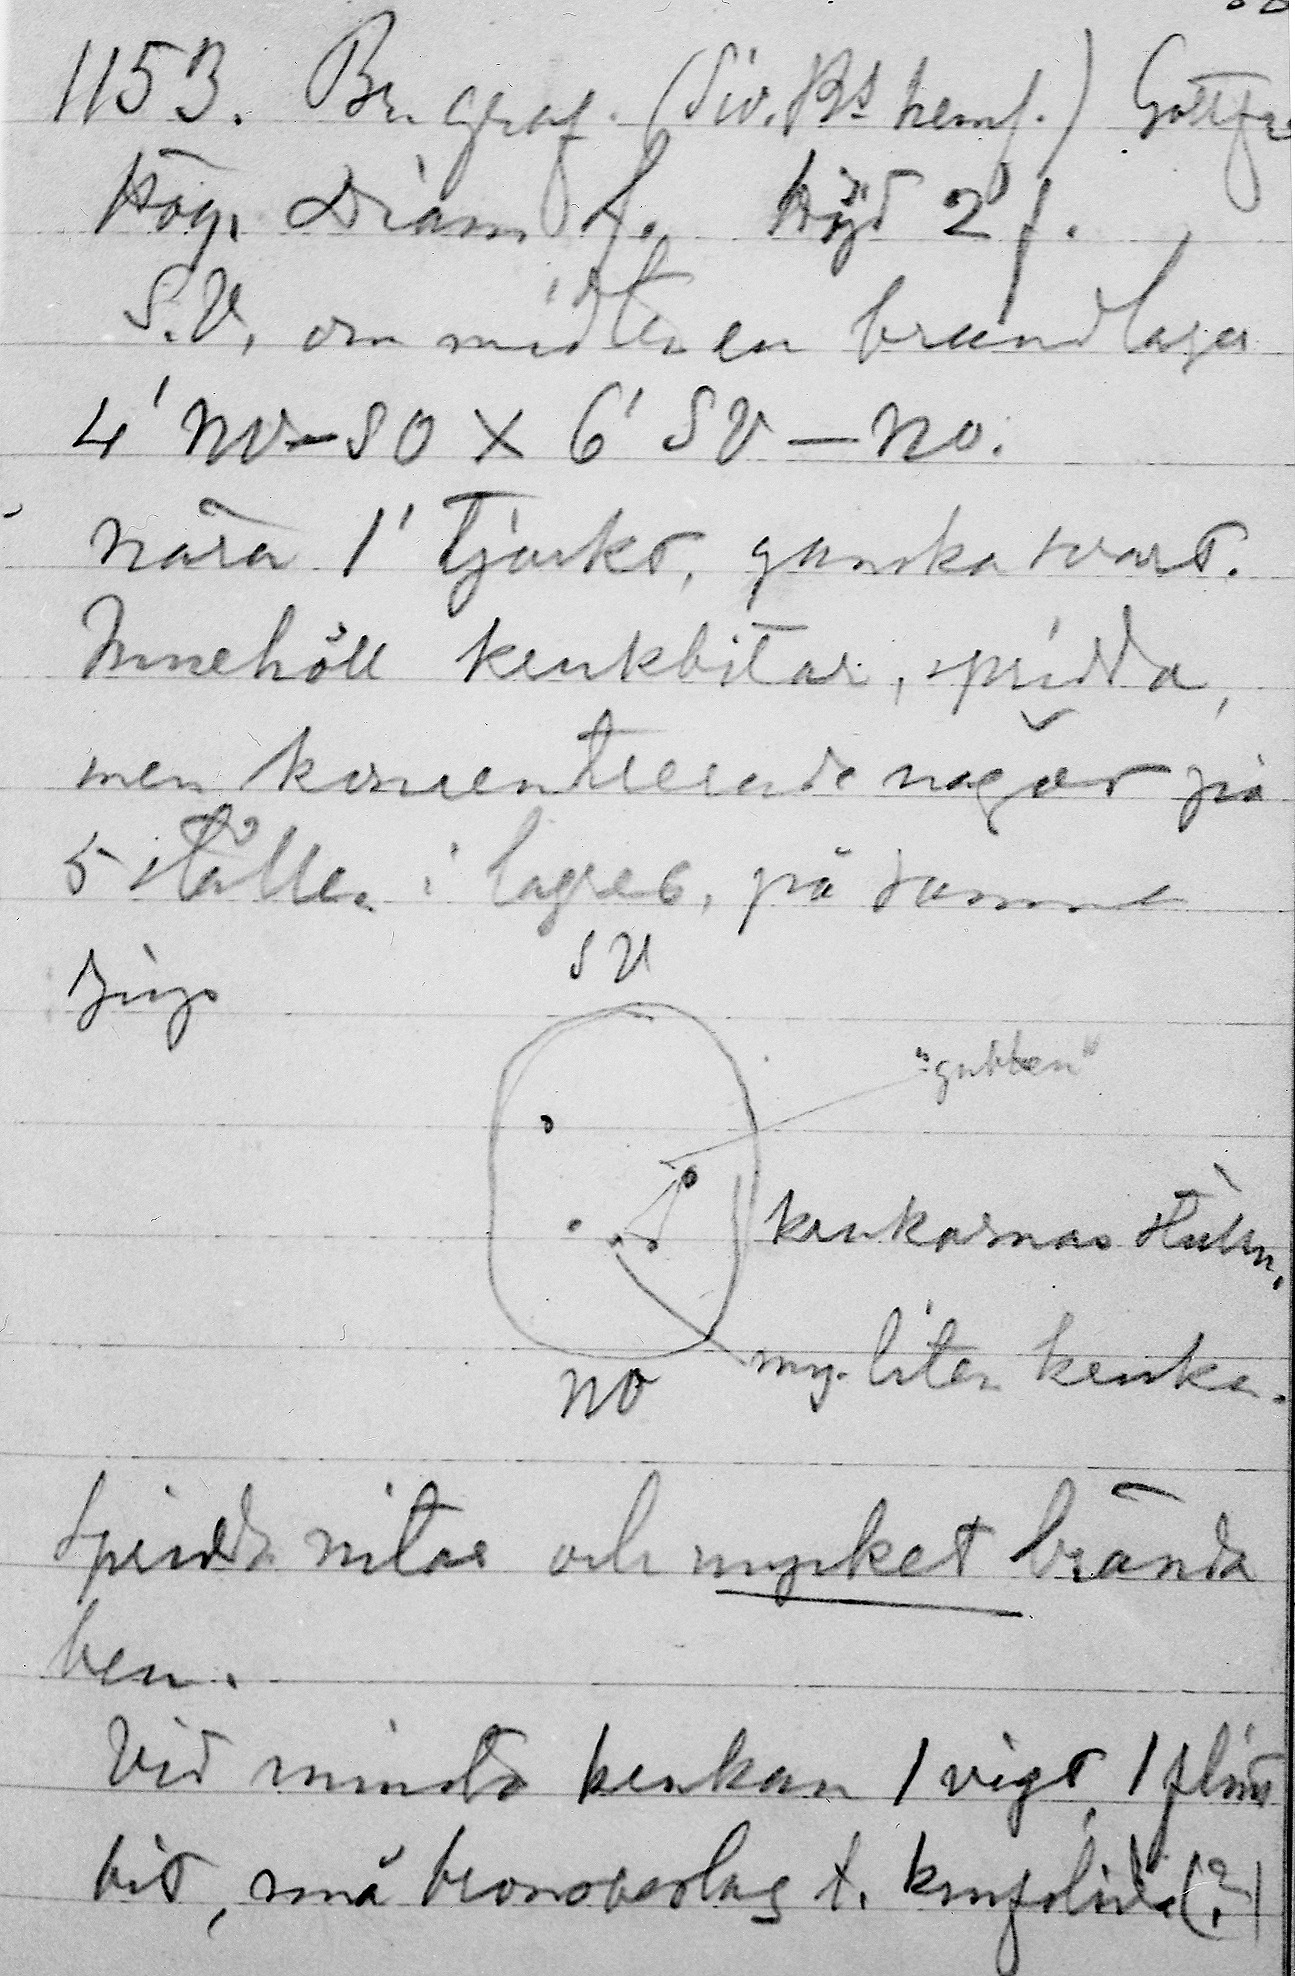 1153. Br. graf. (Div. Bs hemf.) Gottfr
Hög. Diam f. höjd 2' f.
S.V. om midten en brandlager
4' NV–SO × 6' SV–NO.
nära 1' tjockt, ganska svart.
Innehöll krukbitar, spridda,
men koncentrerade något på
5 ställen i lagret, på samma
djup
SV
"gubben"
krukornas ställn.
my. liten kruka.
NO
Spridda nitar och mycket brända
ben.
Vid minsta krukan 1 vigt, 1 flint
bit, små bronsbeslag t. knifslida (?)